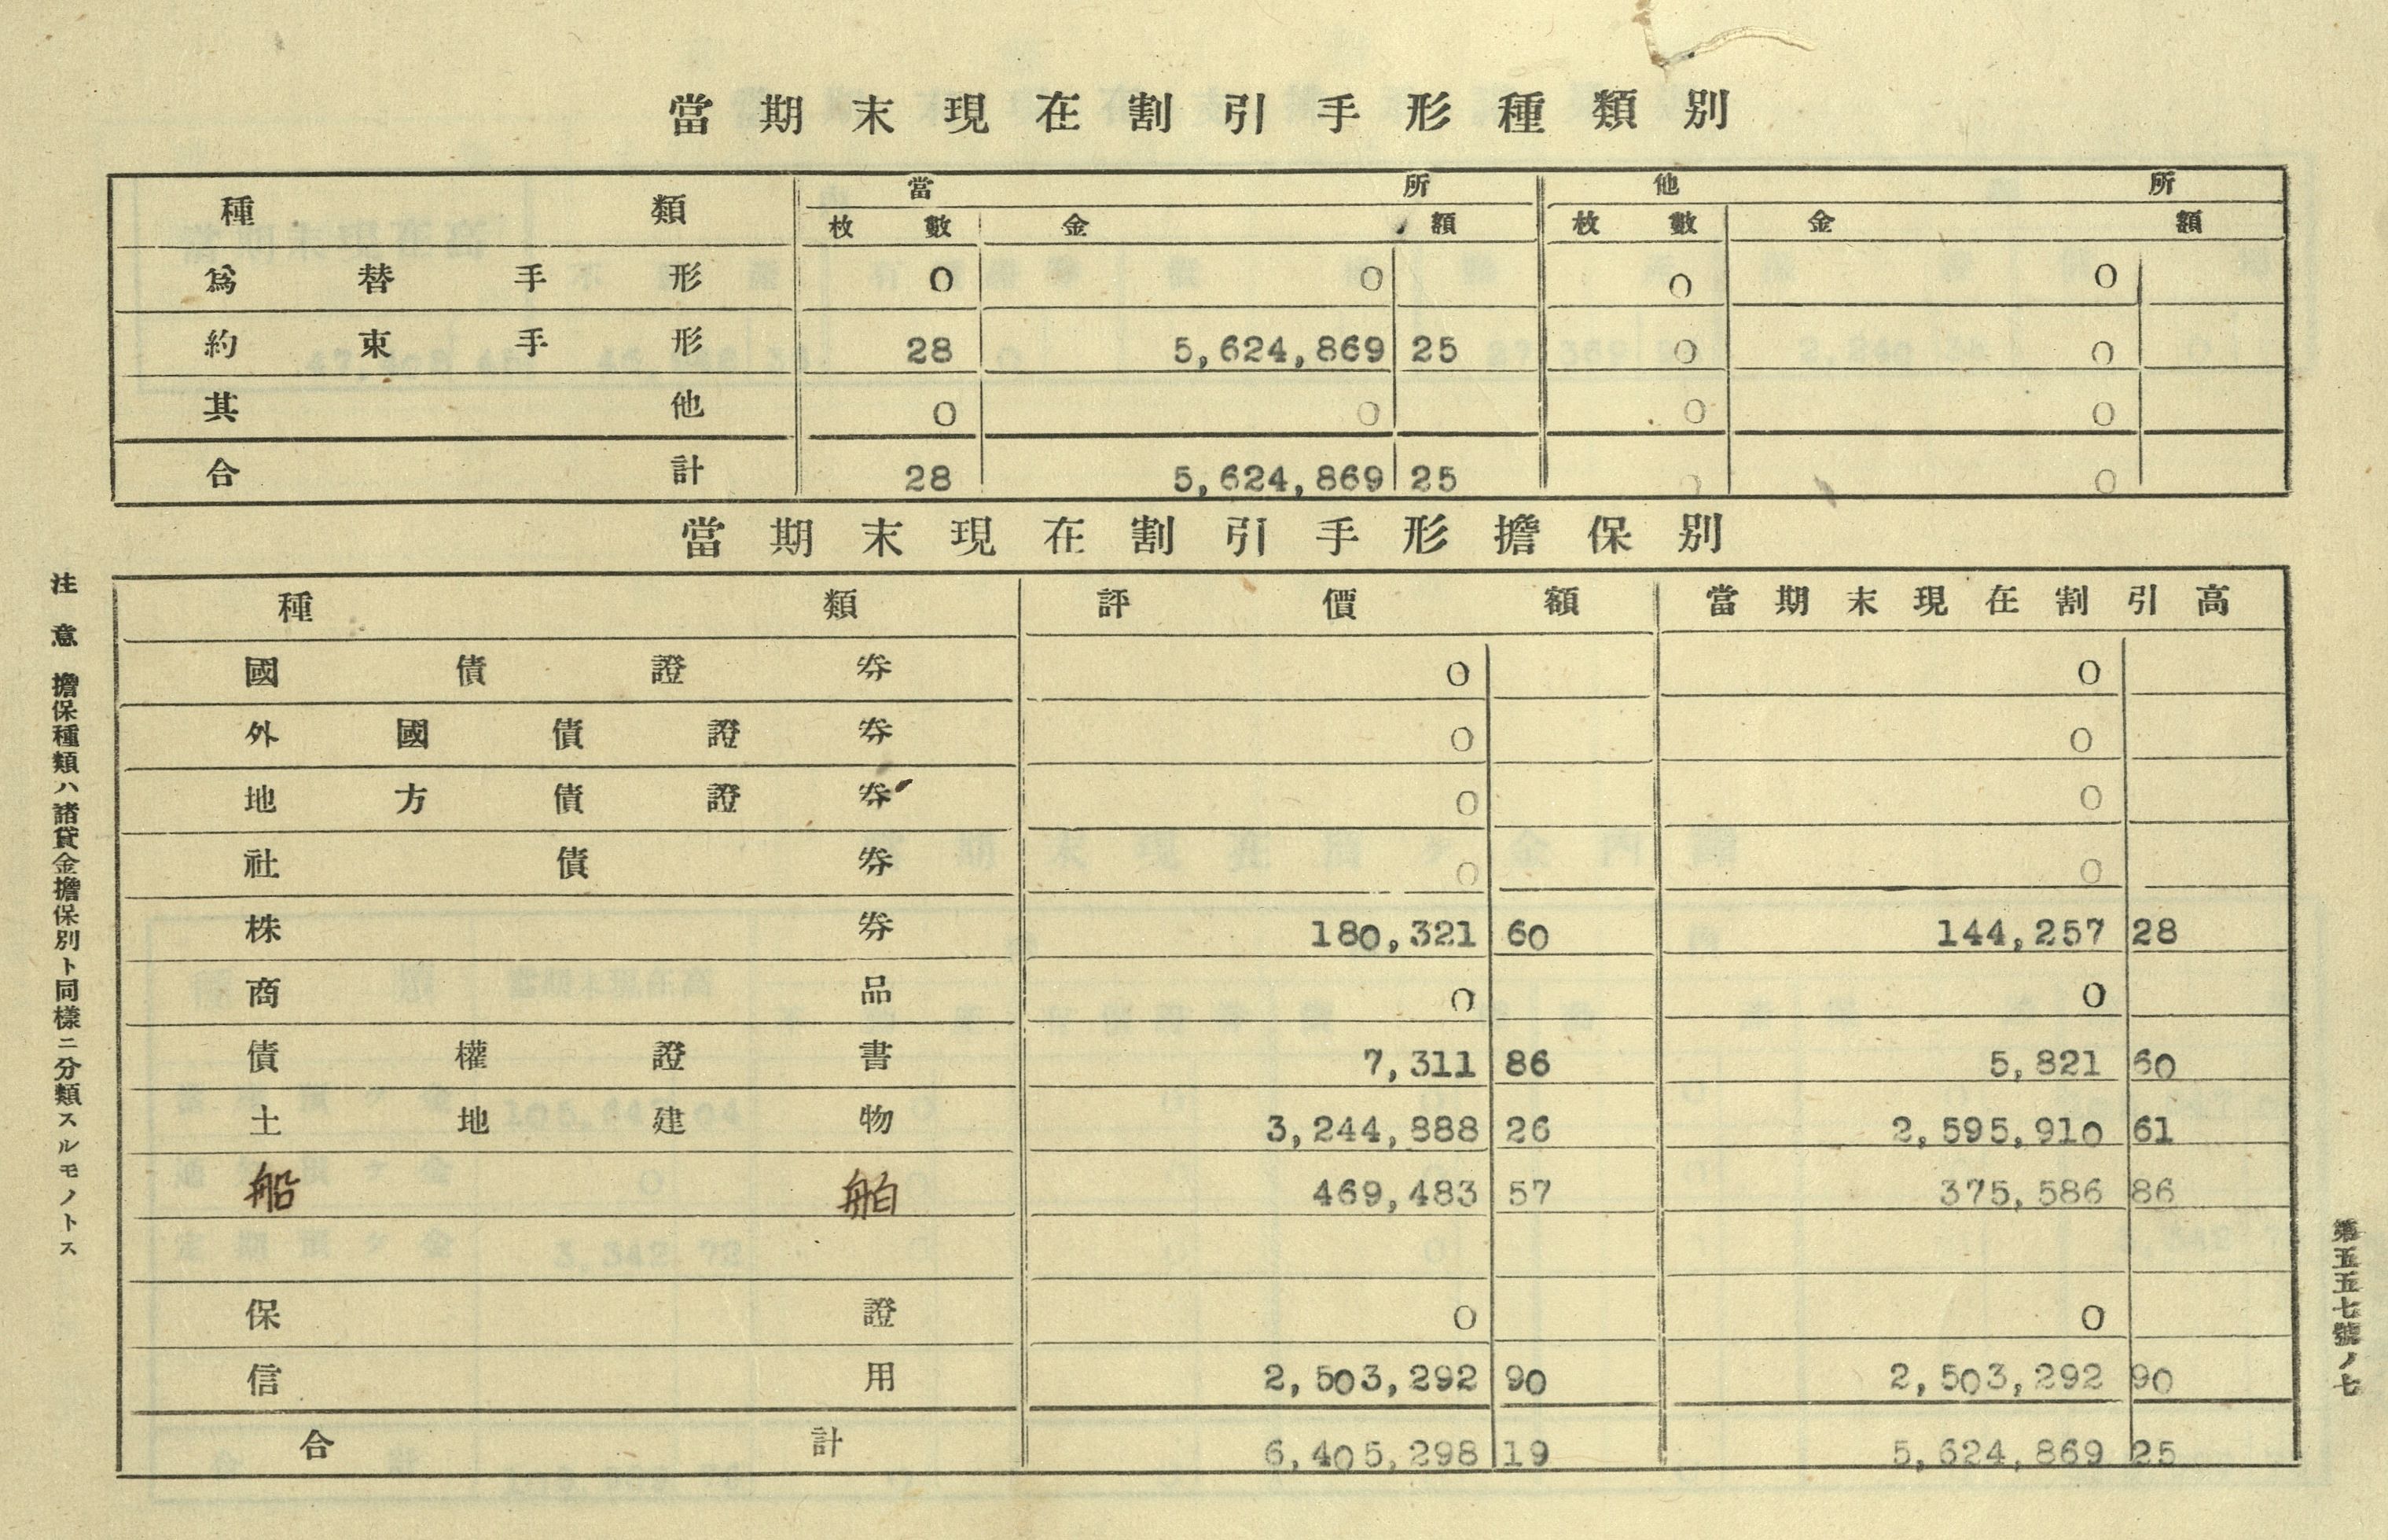 當期末現在割引手形種類別
種類 當所 他所
枚數 金額 枚數 金額
爲替手形 0 0 0 0
約束手形 28 5,624,869 25 0 0
其他 0 0 0 0
合計 28 5,624,869 25 0 0
當期末現在割引手形擔保別
種類 評價額 當期末現在割引高
國債證券 0 0
外國債證券 0 0
地方債證券 0 0
社債券 0 0
株券 180,321 60 144,257 28
商品 0 0
債權證書 7,311 86 5,821 60
土地建物 3,244,888 26 2,595,910 61
船舶 469,483 57 375,586 86
保證 0 0
信用 2,503,292 90 2,503,292 90
合計 6,405,298 19 5,624,869 25
注意 擔保種類ハ諸貸金擔保別ト同樣ニ分類スルモノトス
第五五七號ノ七